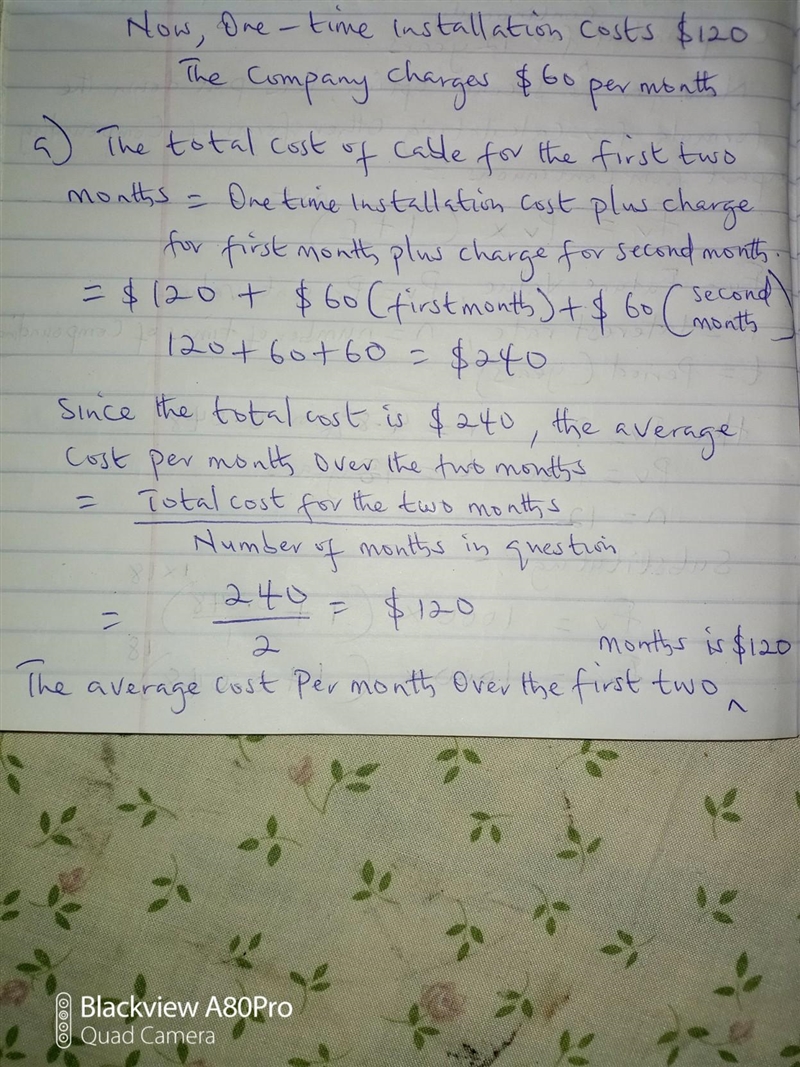 Now, One-time installation costs $120
The Company charges $60 per month
a) The total cost of Cable for the first two
months = One time installation cost plus charge
for first month plus charge for second month.
= $120 + $60 (first month) + $60 (second month)
120 + 60 + 60 = $240
Since the total cost is $240, the average
Cost per month over the two months
= Total cost for the two months
Number of months in question
= 240/2 = $120
months is $120
The average cost Per month Over the first two ^
Blackview A80Pro
Quad Camera